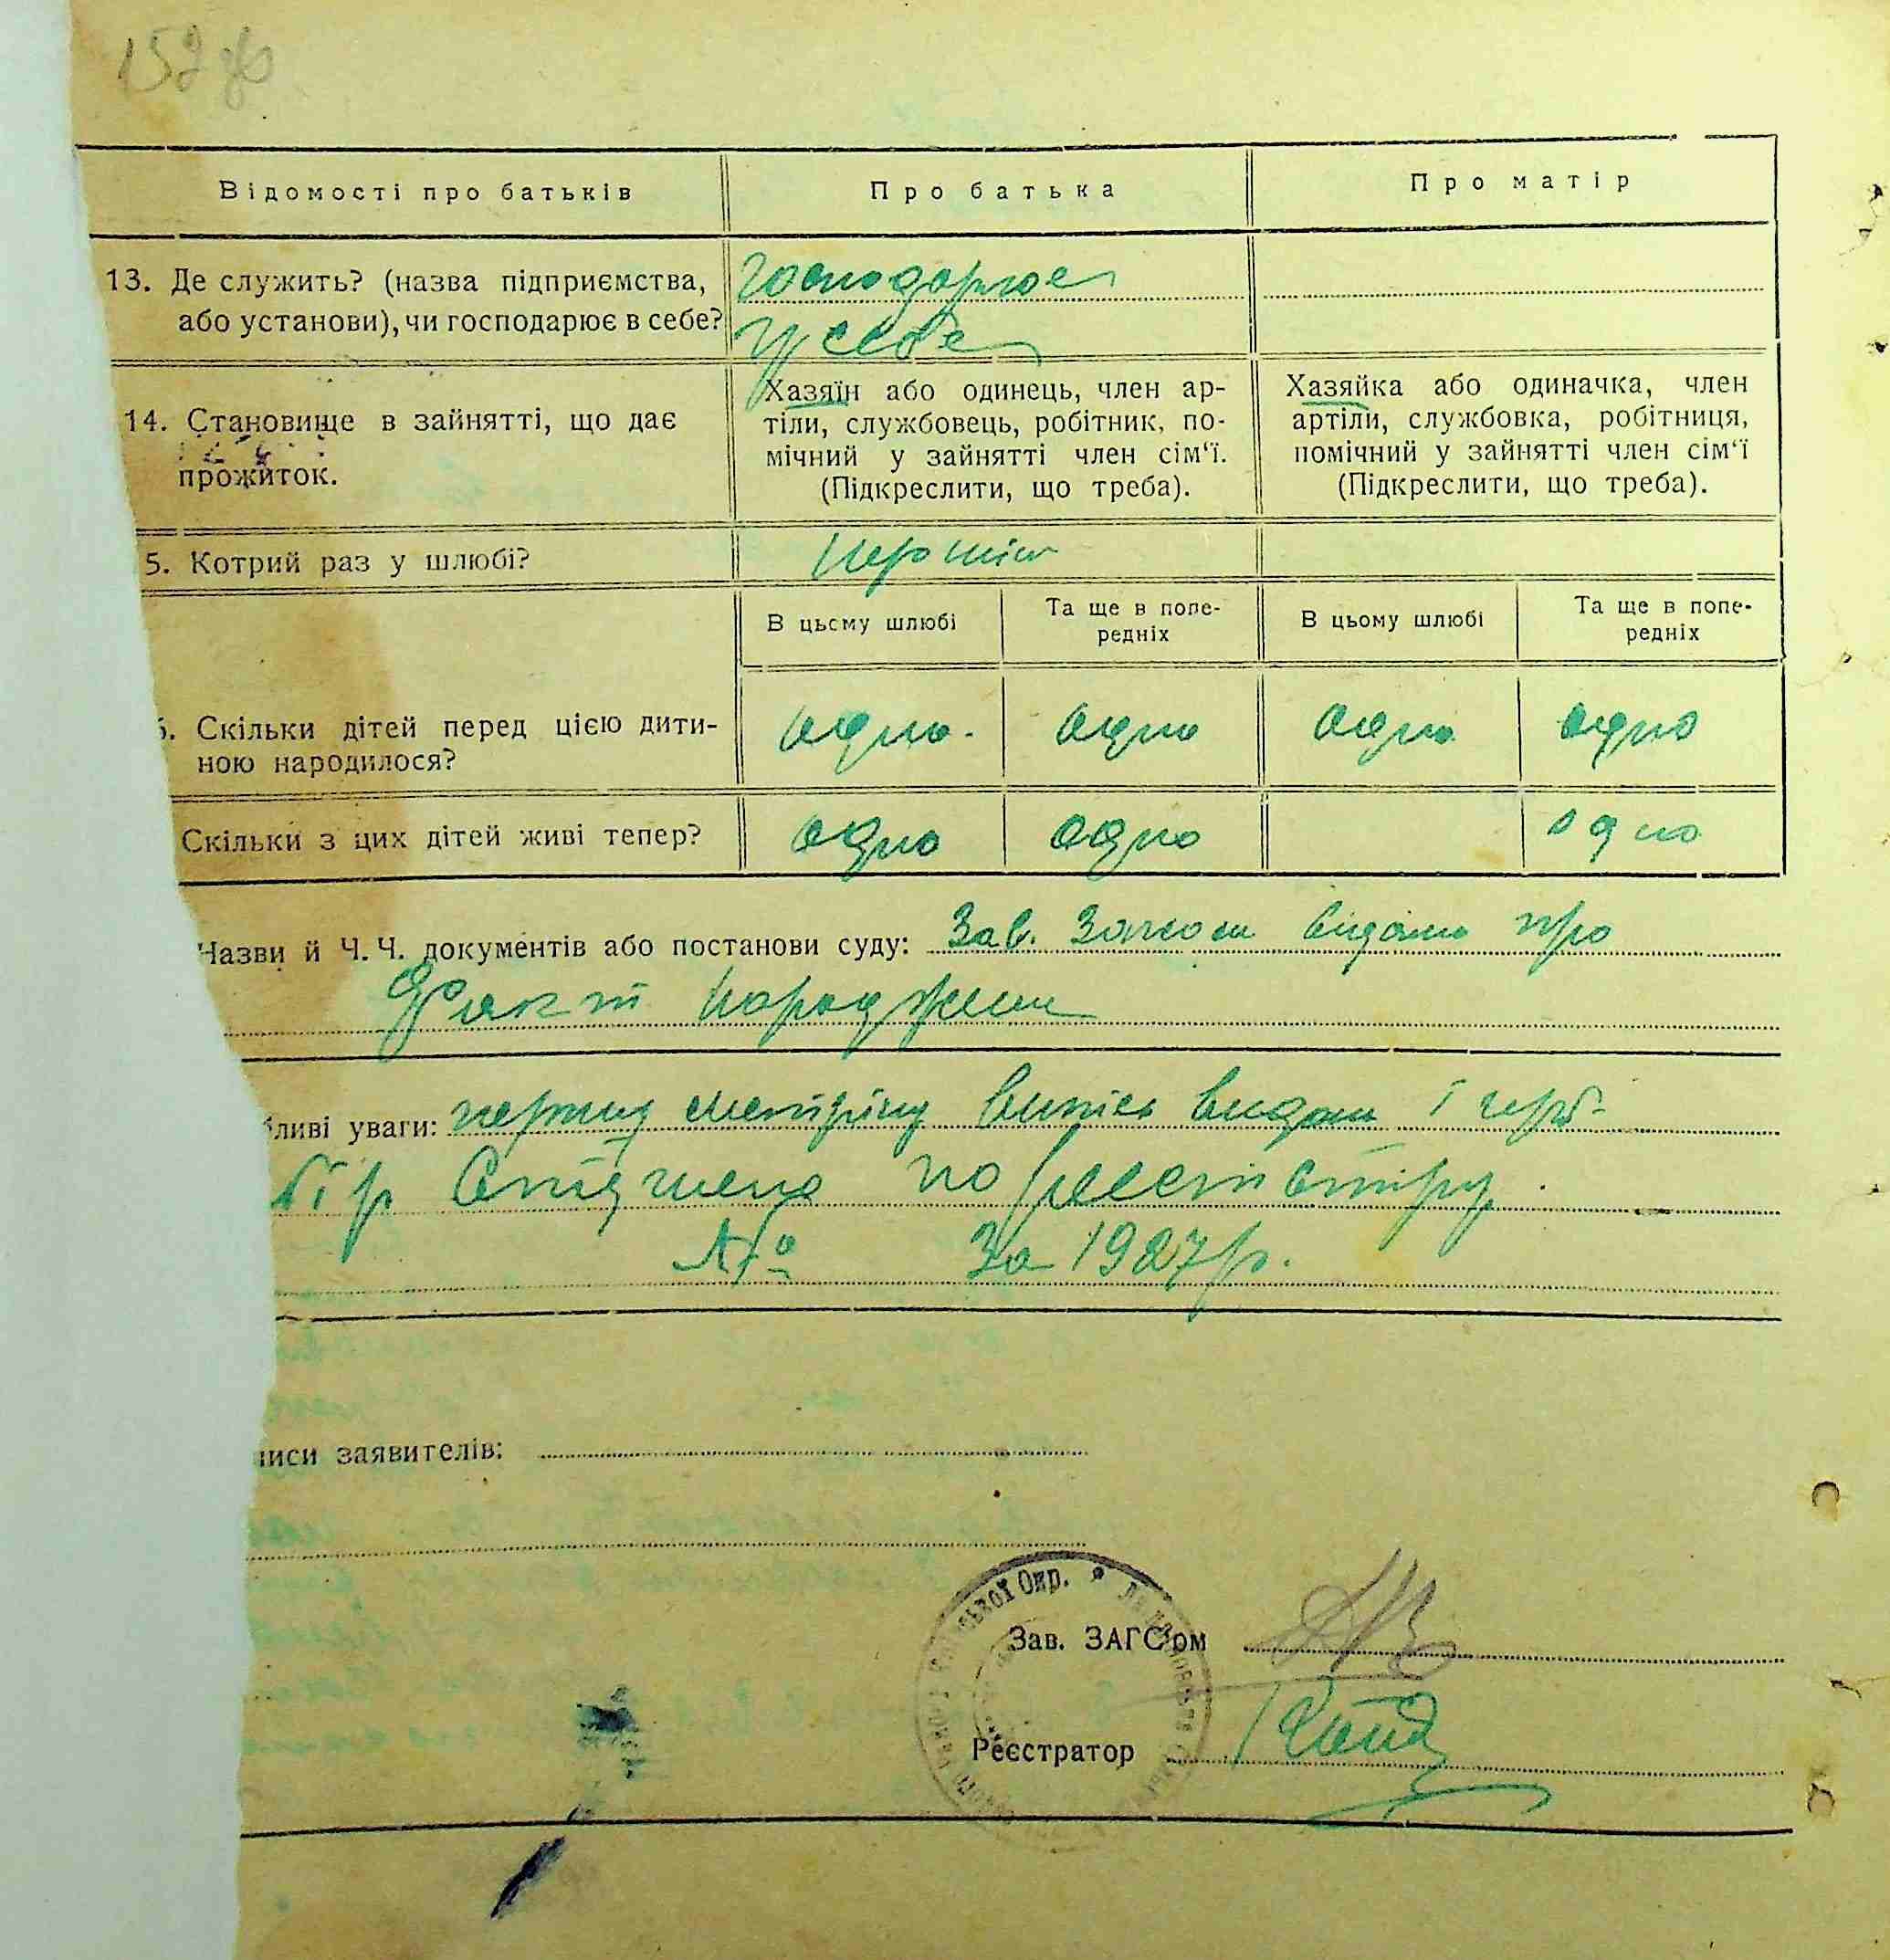 152 зв
Відомості про батьків
Про батька
Про матір
13. Де служить? (назва підприємства,
або установи), чи господарює в себе?
господарює
у себе
14. Становище в зайнятті, що дає
прожиток.
Хазяїн або одинець, член ар-
тіли, службовець, робітник, по-
мічний у зайнятті член сім‘ї.
(Підкреслити, що треба).
Хазяйка або одиначка, член
артіли, службовка, робітниця,
помічний у зайнятті член сім‘ї
(Підкреслити, що треба).
5. Котрий раз у шлюбі?
перший
В цьсму шлюбі
Та ще в попе-
редніх
В цьому шлюбі
Та ще в попе-
редніх
Скільки дітей перед цією дити-
ною народилося?
одно.
одно
одно
одно
Скільки з цих дітей живі тепер?
одно
одно
одно
Назви й Ч. Ч. документів або постанови суду: Зав. Загсом видано про
факт народження
ливі уваги: першу метричну випись видано
по реест
№ За 1927 р.
иси заявителів:
ської Окр.
Зав. ЗАГС'ом
Реєстратор